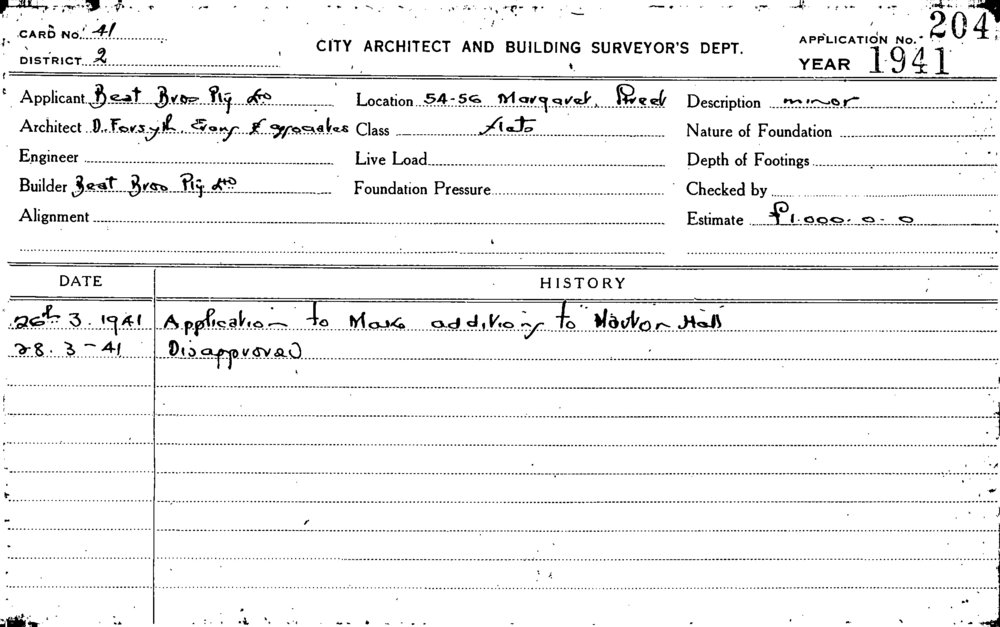 CARD No. 41
DISTRICT 2
CITY ARCHITECT AND BUILDING SURVEYOR'S DEPT.
APPLICATION No. 204
YEAR 1941
Applicant Beat Bros Pty Ltd Location 54-56 Margaret Street Description minor
Architect D. Forsyth Evans & Associates Class flats Nature of Foundation
Engineer Live Load Depth of Footings
Builder Beat Bros Pty Ltd Foundation Pressure Checked by
Alignment Estimate £1.000.0.0
DATE HISTORY
26th 3. 1941 Application to Make additions to Hall
28. 3-41 Disapproved